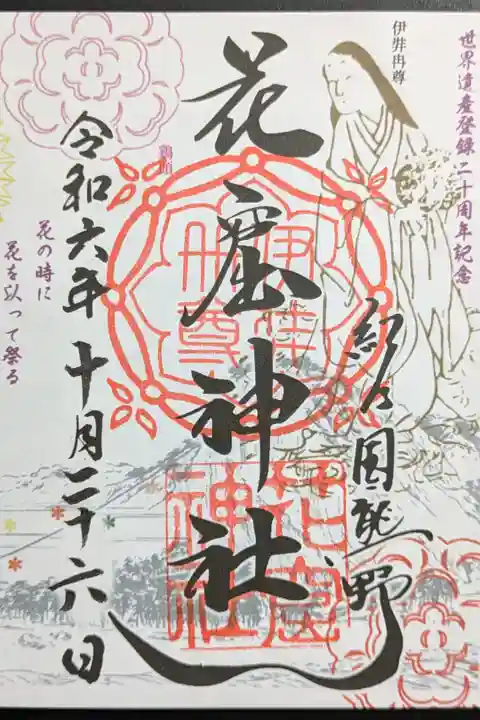 世界遺産登録二十周年記念
伊弉冉尊
紀伊国熊野
花窟神社
伊弉冉尊
花窟神社
令和六年十月二十六日
花の時に
花を以って祭る